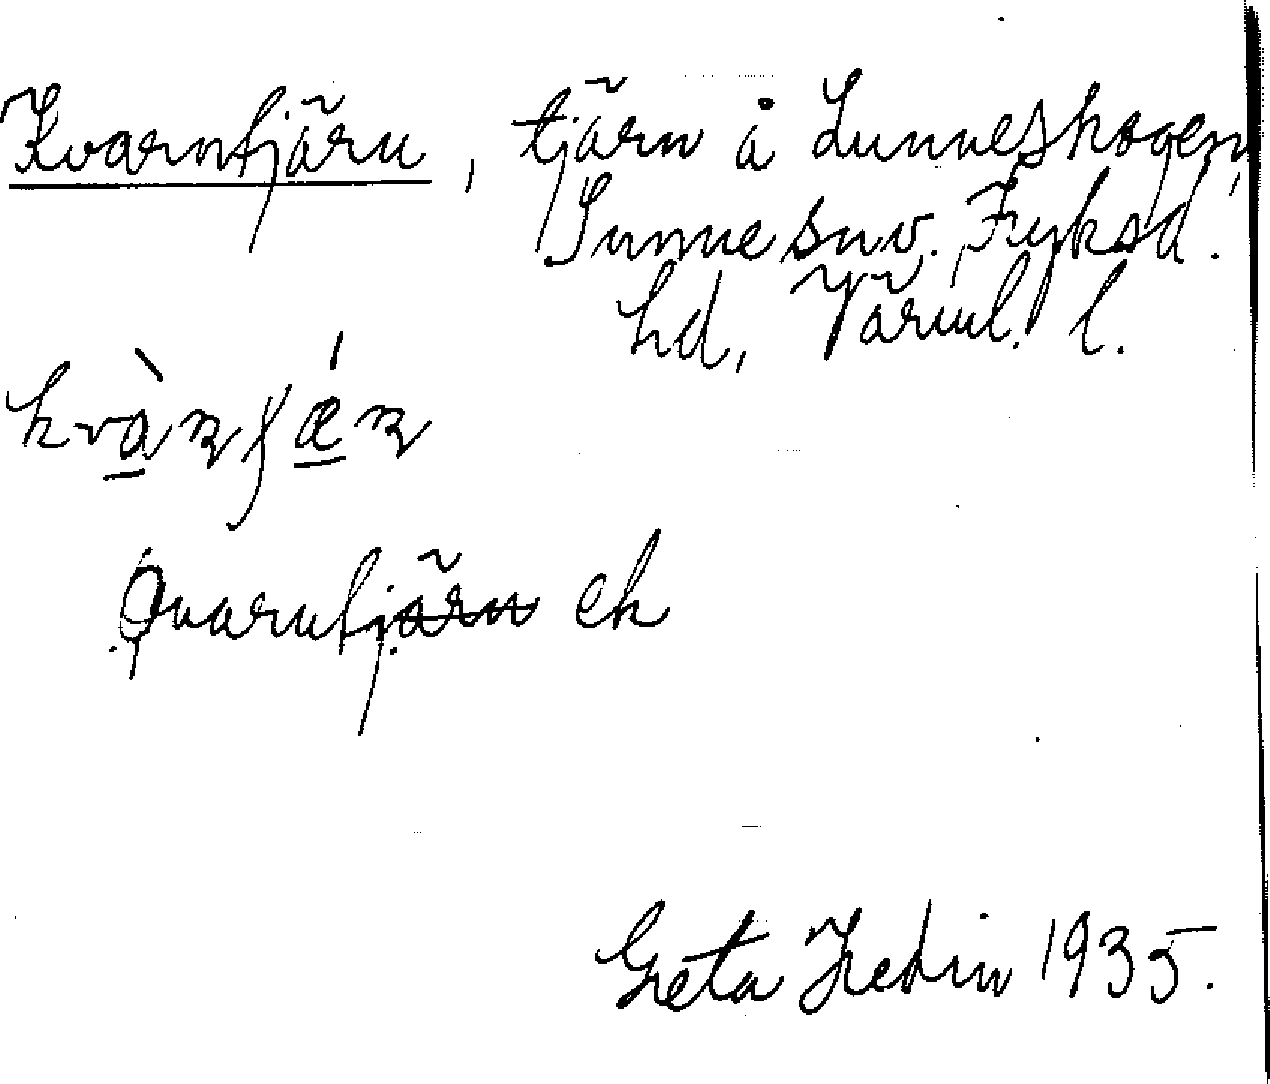 Kvarntjärn, tjärn å Lunneskogen,
Sunne snv. Fryksd.
hd, Värml. l.
Qvarntjärn ek
Greta Hedin 1935.